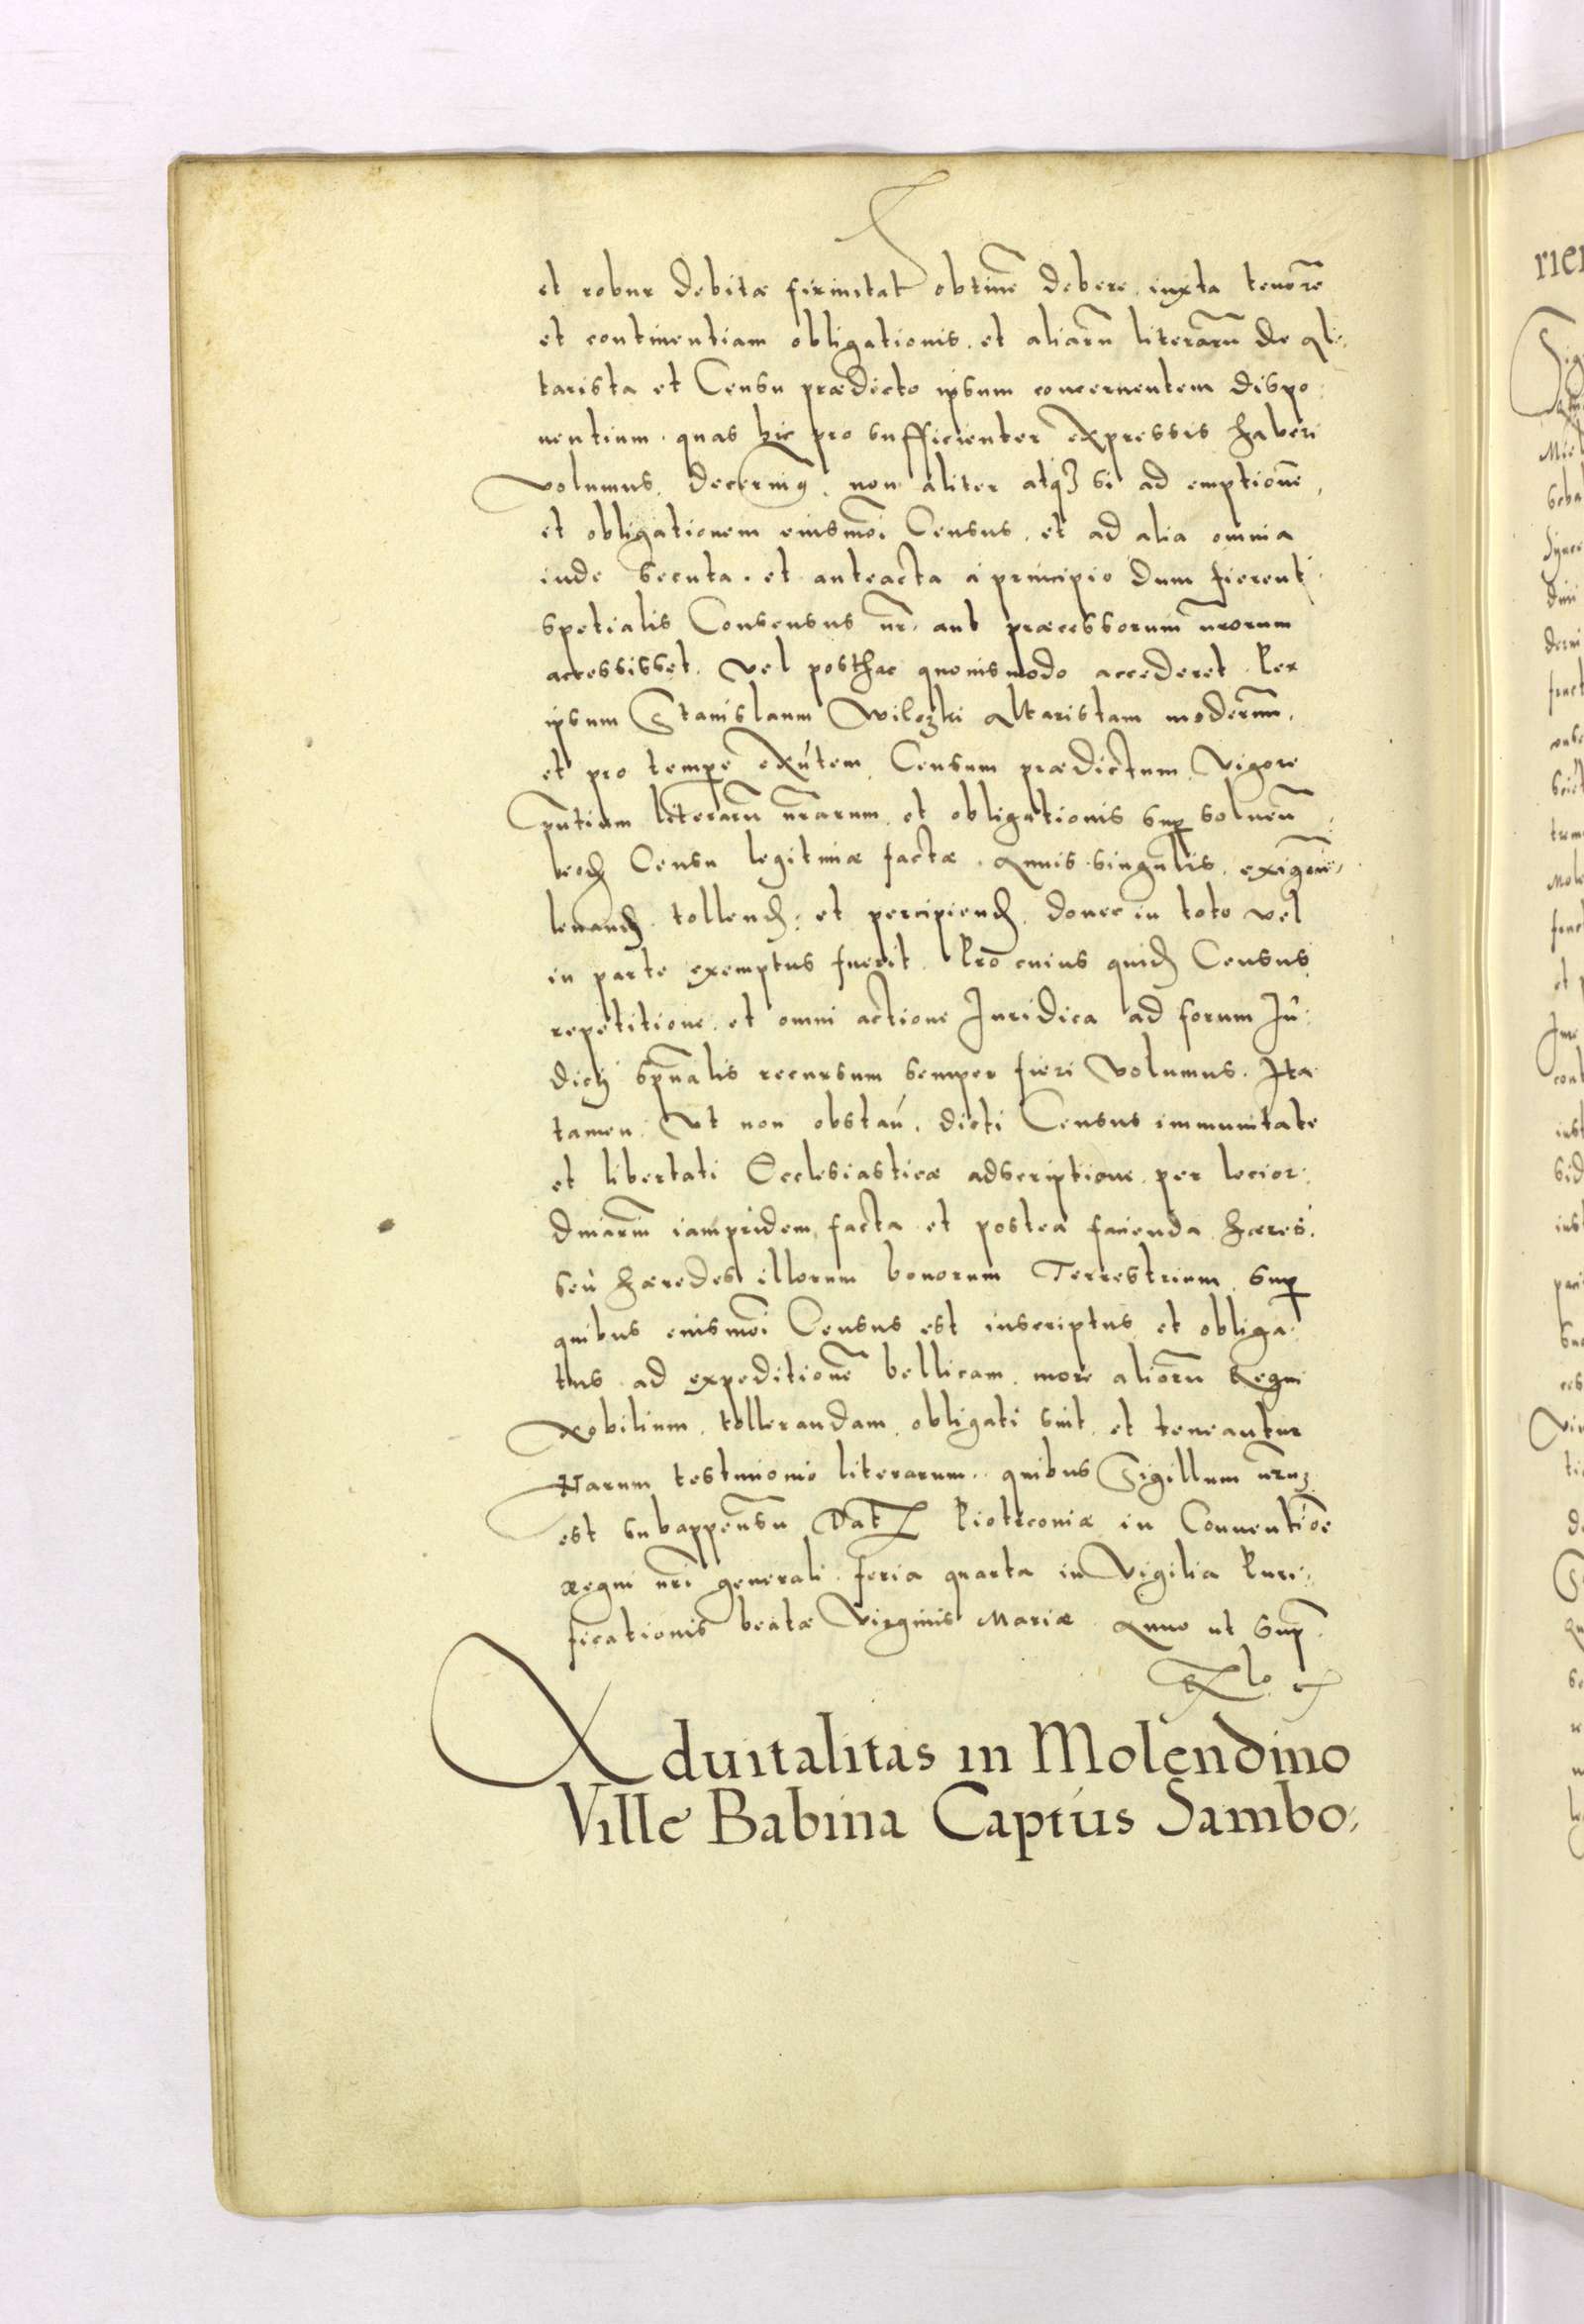 et robur debitæ firmitat obtinē debere iuxta tenorē
et continentiam obligationis, et aliarū literarū de Al-
tarista et Censu prædicto ipsum concernentem dispo-
nentium, quas hic pro sufficienter expressis haberi
volumus, decernimꝰ, non aliter atqꝫ si ad emptionē,
et obligationem eiusmōi Census, et ad alia omnia
inde secuta, et anteacta à principio dum fierent
spetialis Consensus nr̄, aut præcessorum nr̄orum
accessisset, vel posthac quouismodo accederet. Per
ipsum Stanislaum Wilczki Altaristam modernū,
et pro tempe exn̄tem, Censum prædictum, Vigore
pn̄tium literarū nr̄arum, et obligationis sup soluen̄
eod Censu legitimæ factæ, Annis singulis, exigen̄,
leuand, tollend, et percipiend, donec in toto vel
in parte exemptus fuerit. Pro cuius quid Census
repetitione, et omni actione Iuridica ad forum Iu-
dicij sp̄ualis recursum semper fieri volumus. Ita
tamen, Vt non obstan̄, dicti Census immunitate
et libertati Ecclesiasticæ adscriptione per locior
dinariū iampridem facta et postea facienda hæres,
seu hæredes illorum bonorum Terrestrium, sup
quibus eiusmōi Census est inscriptus et obliga-
tus ad expeditionē bellicam, more aliorū Regni
Nobilium, tollerandam, obligati sint, et teneantur
Harum testimonio literarum, quibus Sigillum nr̄uꝫ
est subappensū Dat Piotrcouiæ in Conuentiōe
Regni nr̄i generali feria quarta in Vigilia Puri-
ficationis beatæ Virginis Mariæ Anno ut sup
Advitalitas in Molendino
Ville Babina Captus Sambo-